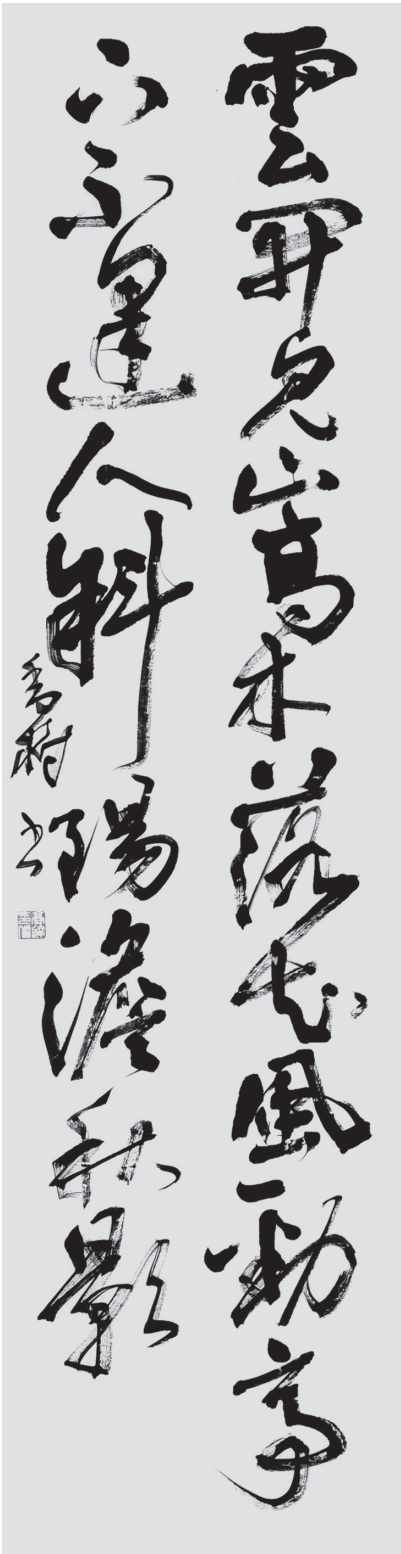 雲開見山高木落知風勁亭
下不逢人斜陽澹秋影
書